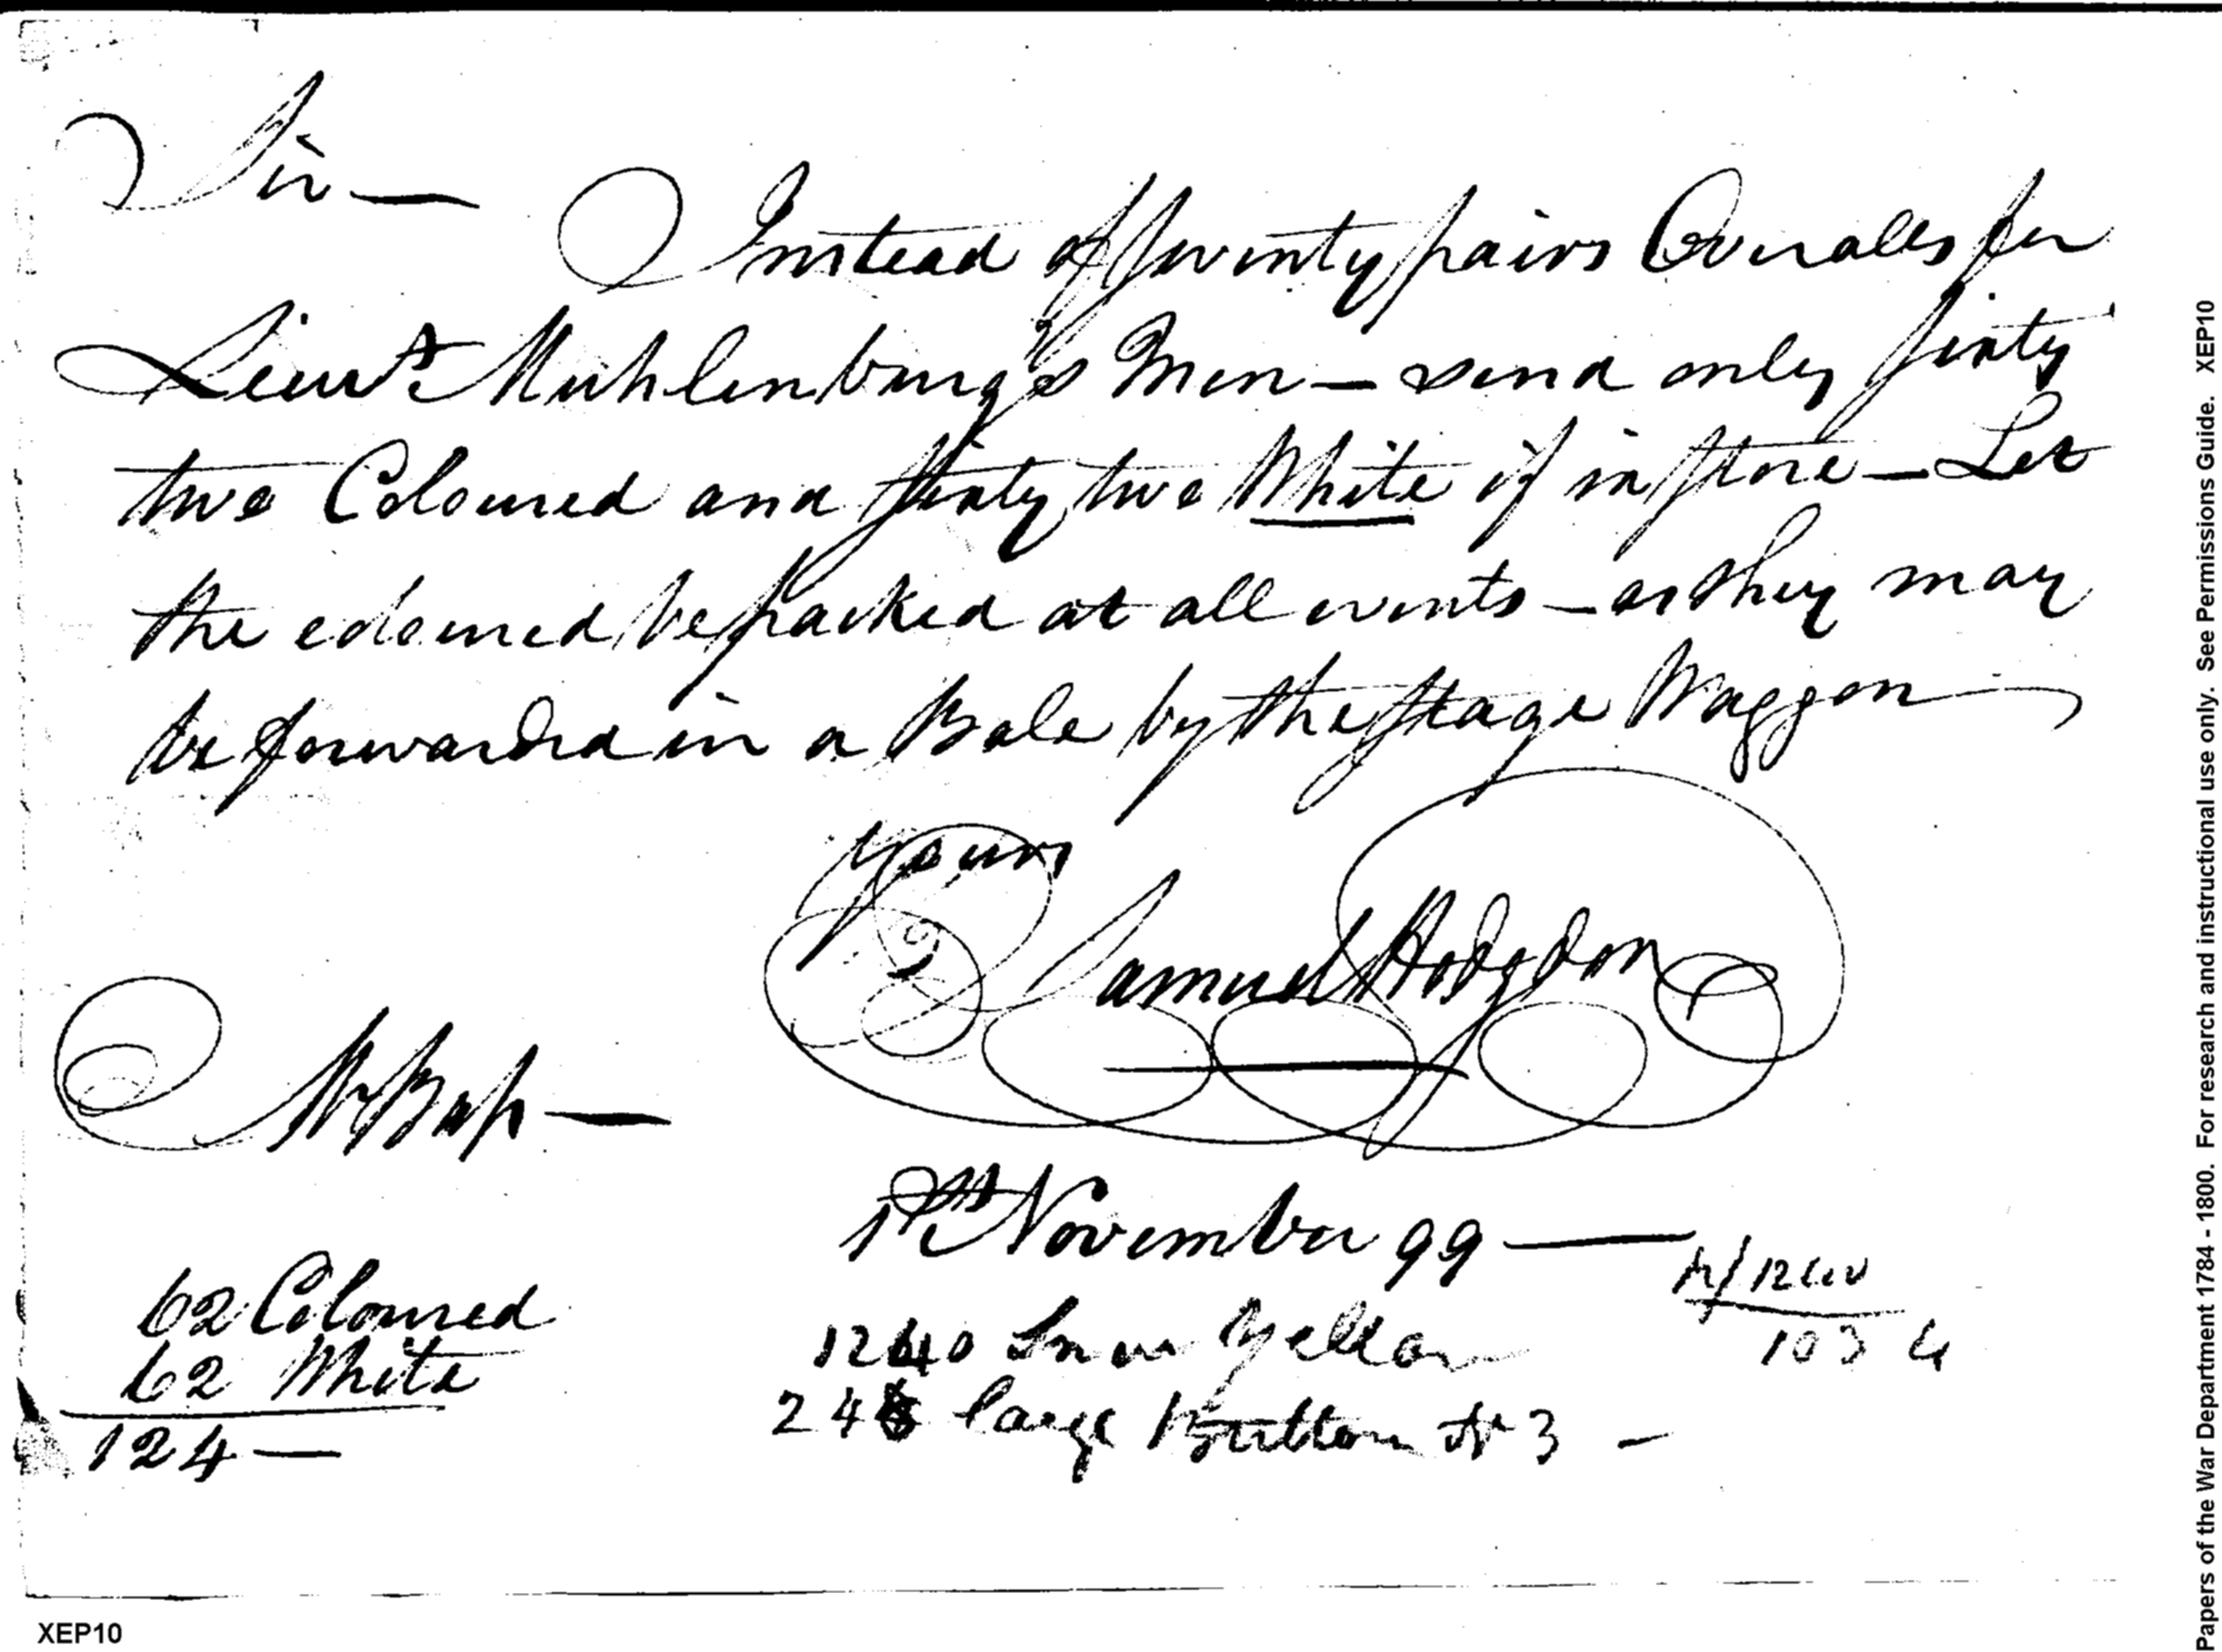 Sir —
Instead of seventy pairs Overalls for
Lieut Muhlenburg's Men — send only sixty
two Coloured and sixty two White if in store — Let
the coloured be packed at all events — as they may
be forwarded in a Bale by the stage Waggon
Yours
Samuel Hodgdon
November 99 —
12/1240
62 Coloured
1240 Yellow
103 4
62 White
248 large Button No 3 —
124 —
XEP10
Papers of the War Department 1784 - 1800. For research and instructional use only. See Permissions Guide. XEP10